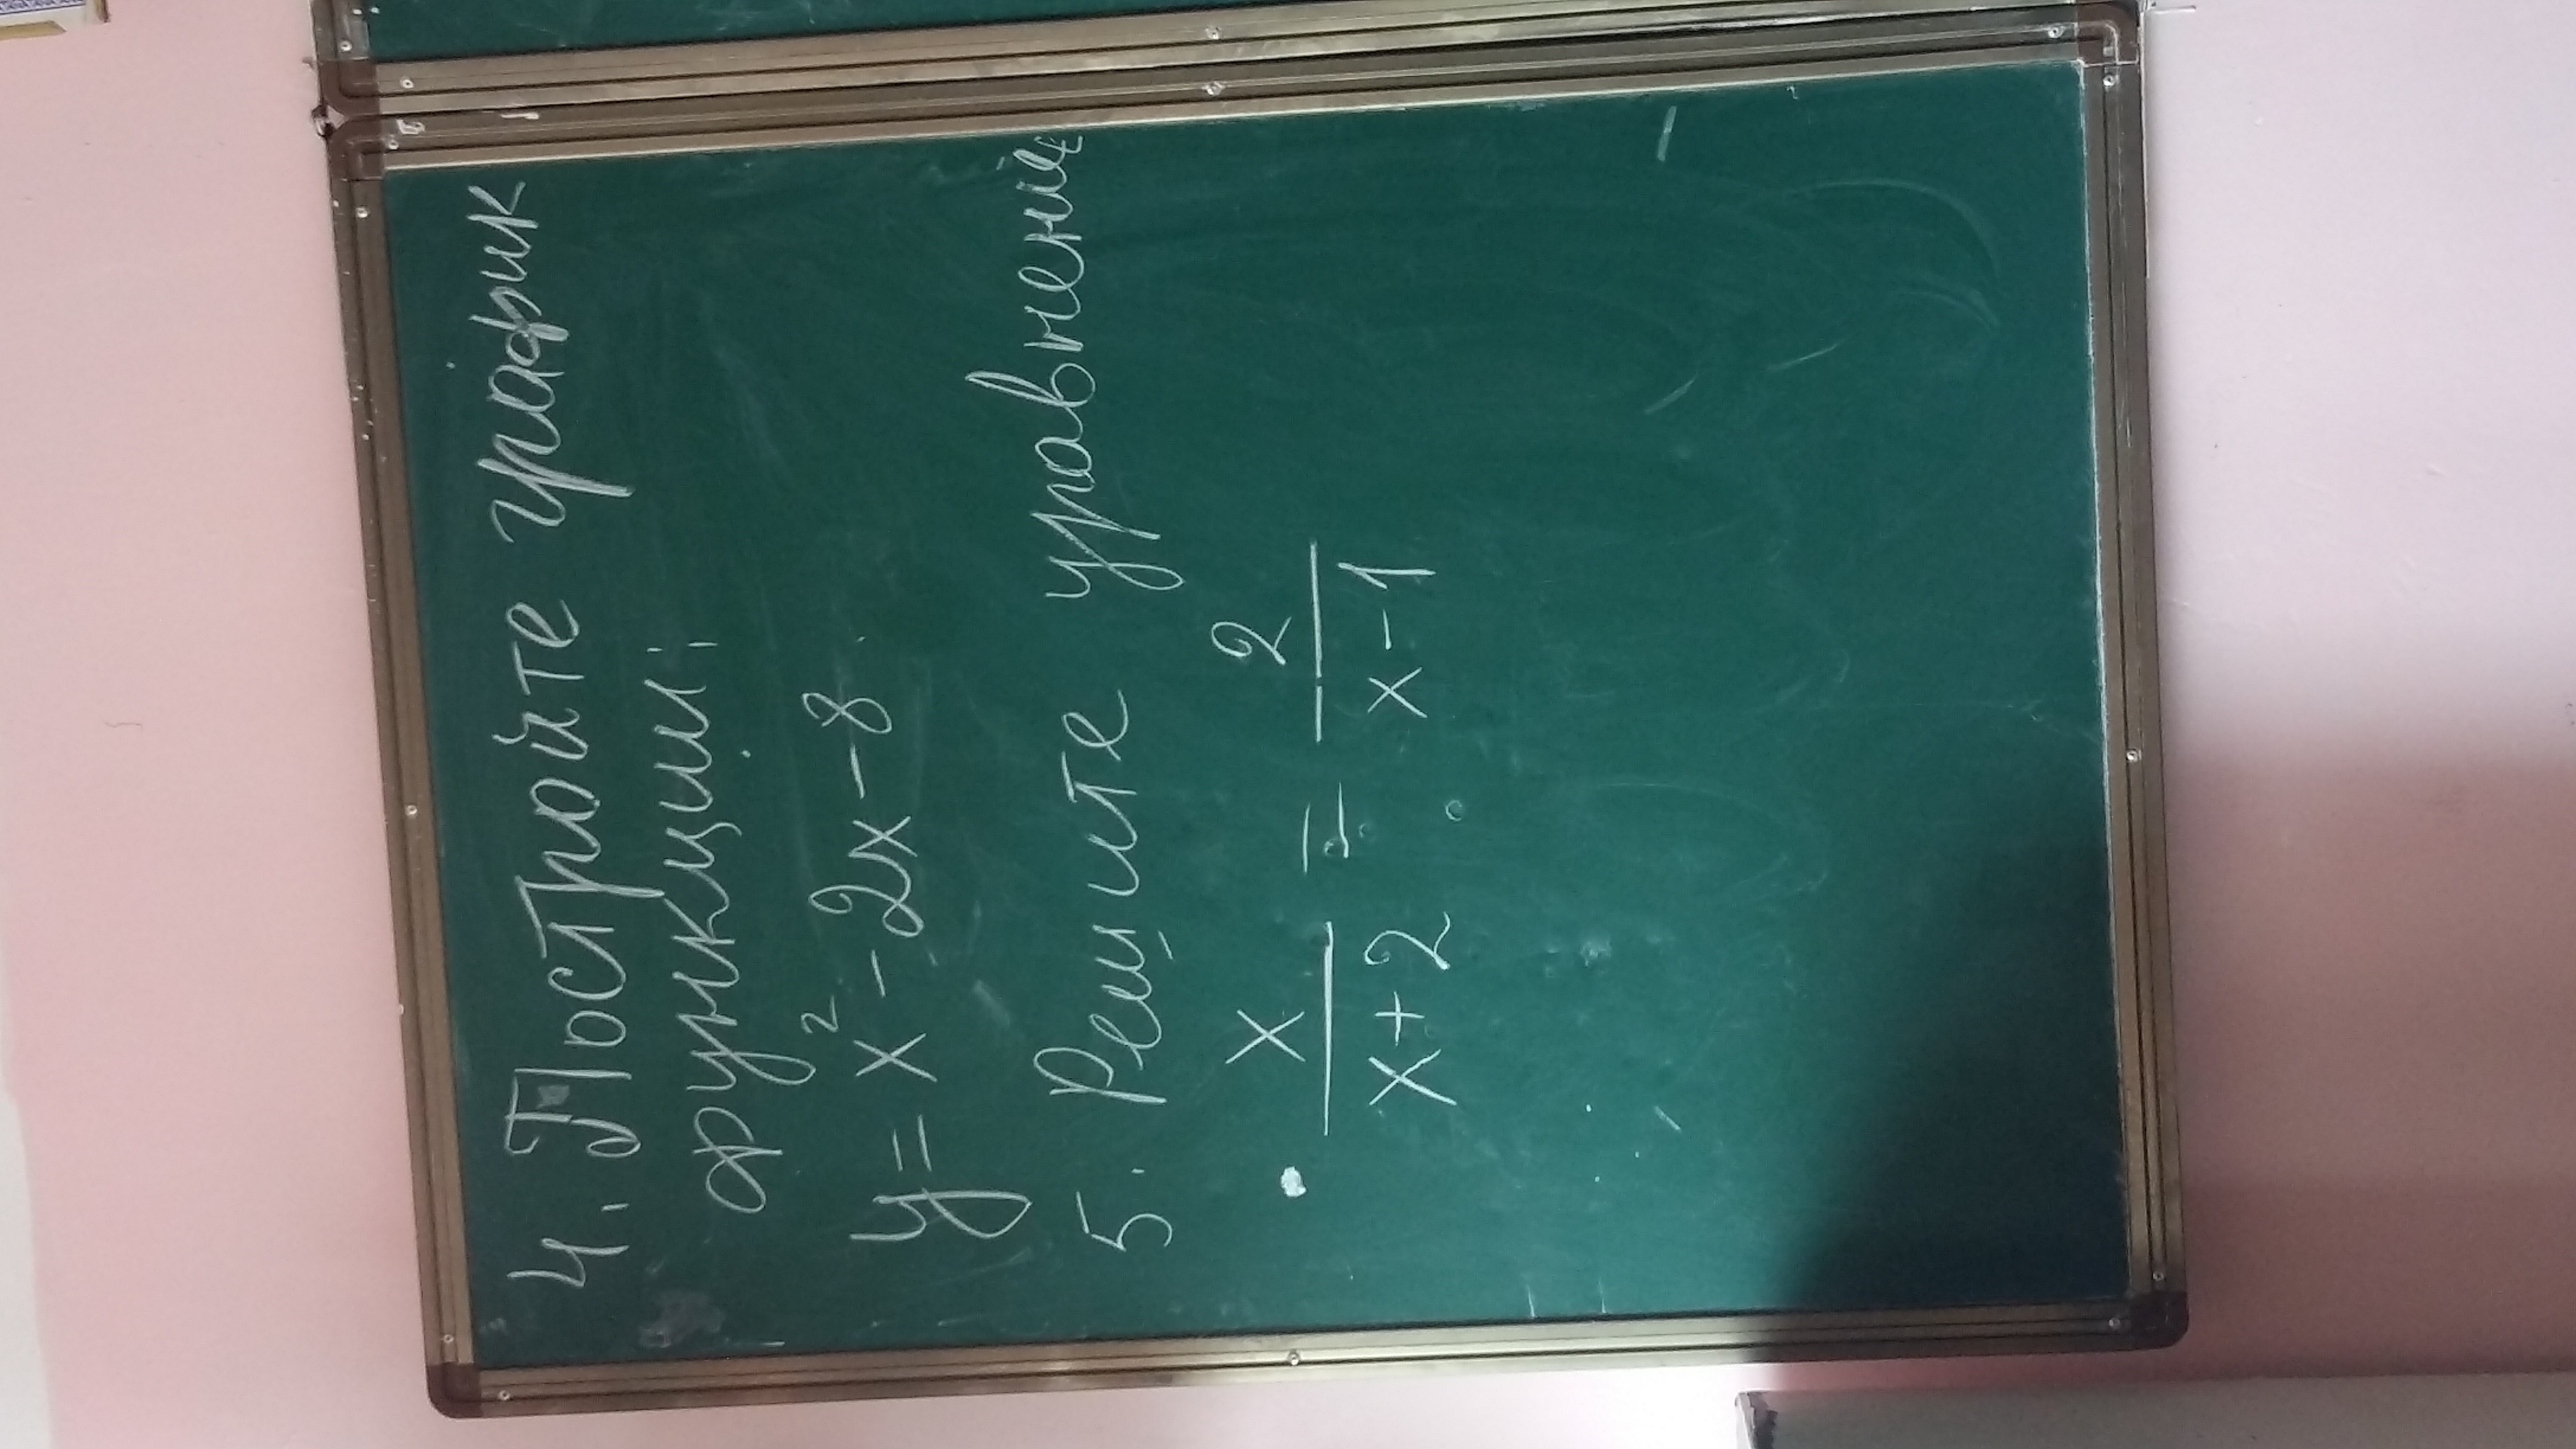 4. Постройте график
функции:
y = x² - 2x - 8
5. Решите уравнение
x/(x+2) = 2/(x-1)